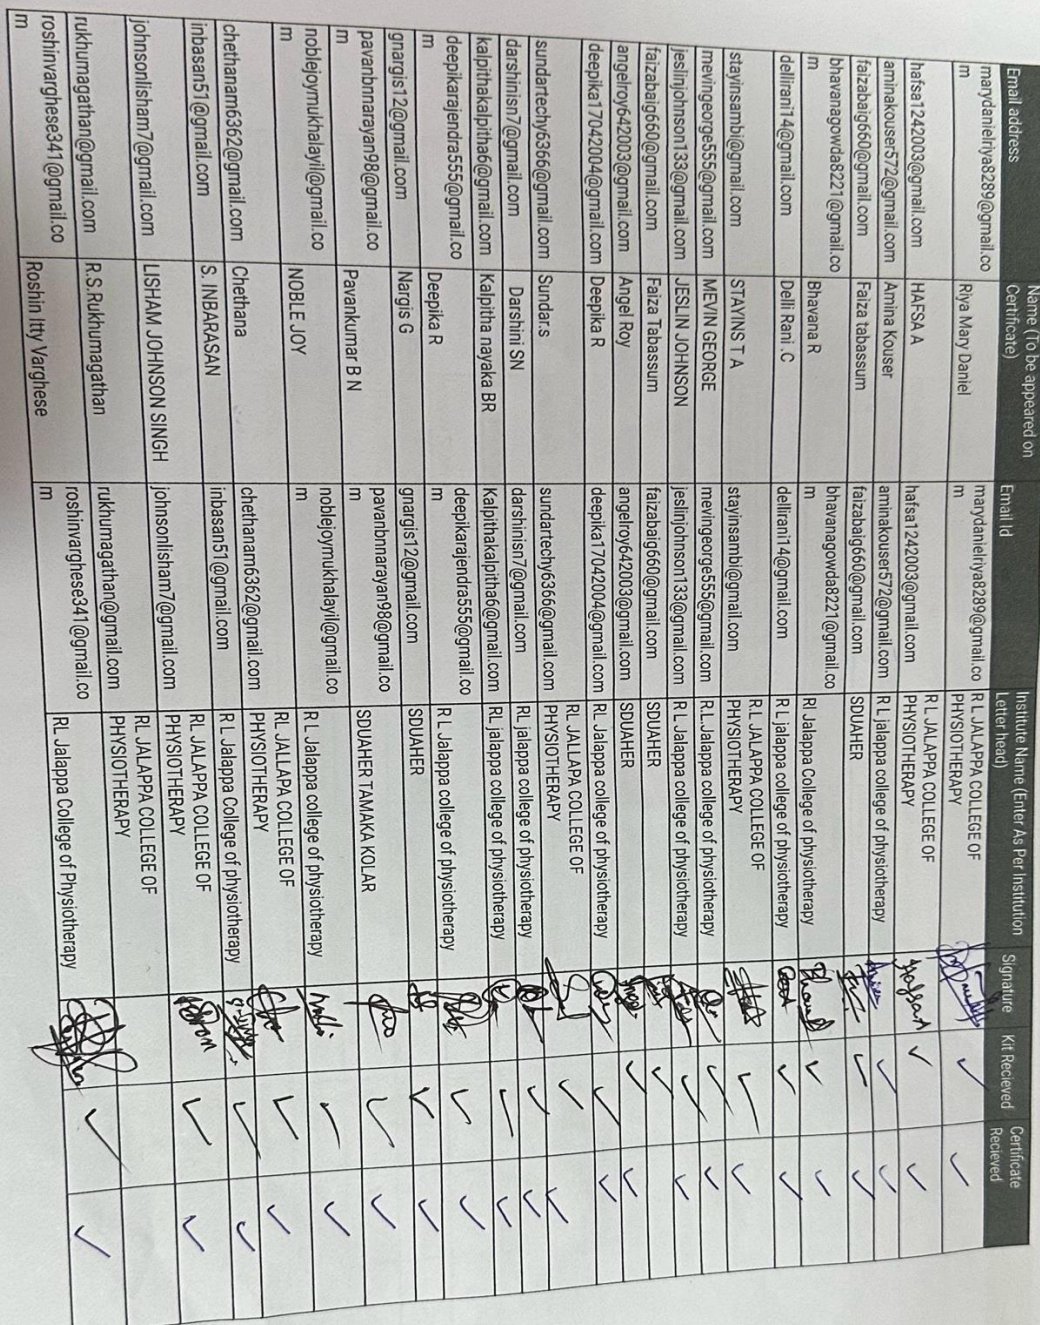 Email address Name (To be appeared on Certificate) Email Id Institute Name (Enter As Per Institution Letter head) Signature Kit Recieved Certificate Recieved
marydanielriya8289@gmail.com Riya Mary Daniel marydanielriya8289@gmail.com R L JALAPPA COLLEGE OF PHYSIOTHERAPY ✓ ✓
hafsa1242003@gmail.com HAFSA A hafsa1242003@gmail.com R L JALAPPA COLLEGE OF PHYSIOTHERAPY ✓ ✓
aminakouser572@gmail.com Amina Kouser aminakouser572@gmail.com R L jalappa college of physiotherapy ✓ ✓
faizabaig660@gmail.com Faiza tabassum faizabaig660@gmail.com SDUAHER ✓ ✓
bhavanagowda8221@gmail.com Bhavana R bhavanagowda8221@gmail.com Rl Jalappa College of physiotherapy ✓ ✓
dellirani14@gmail.com Delli Rani .C dellirani14@gmail.com R L jalappa college of physiotherapy ✓ ✓
stayinsambi@gmail.com STAYINS T A stayinsambi@gmail.com R L JALAPPA COLLEGE OF PHYSIOTHERAPY ✓ ✓
mevingeorge555@gmail.com MEVIN GEORGE mevingeorge555@gmail.com R.L.Jalappa college of physiotherapy ✓ ✓
jeslinjohnson133@gmail.com JESLIN JOHNSON jeslinjohnson133@gmail.com R L Jalappa college of physiotherapy ✓ ✓
faizabaig660@gmail.com Faiza Tabassum faizabaig660@gmail.com SDUAHER ✓
angelroy642003@gmail.com Angel Roy angelroy642003@gmail.com SDUAHER ✓ ✓
deepika17042004@gmail.com Deepika R deepika17042004@gmail.com RL Jalappa college of physiotherapy ✓ ✓
sundartechy6366@gmail.com Sundar.s sundartechy6366@gmail.com RL JALLAPA COLLEGE OF PHYSIOTHERAPY ✓ ✓
darshinisn7@gmail.com Darshini SN darshinisn7@gmail.com RL jalappa college of physiotherapy ✓ ✓
kalpithakalpitha6@gmail.com Kalpitha nayaka BR Kalpithakalpitha6@gmail.com RL jalappa college of physiotherapy ✓ ✓
deepikarajendra555@gmail.com Deepika R deepikarajendra555@gmail.com R L Jalappa college of physiotherapy ✓ ✓
gnargis12@gmail.com Nargis G gnargis12@gmail.com SDUAHER ✓ ✓
pavanbnnarayan98@gmail.com Pavankumar B N pavanbnnarayan98@gmail.com SDUAHER TAMAKA KOLAR ✓ ✓
noblejoymukhalayil@gmail.com NOBLE JOY noblejoymukhalayil@gmail.com R L Jalappa college of physiotherapy ✓ ✓
chethanam6362@gmail.com Chethana chethanam6362@gmail.com RL JALLAPA COLLEGE OF PHYSIOTHERAPY ✓ ✓
inbasan51@gmail.com S. INBARASAN inbasan51@gmail.com R L Jalappa College of physiotherapy ✓ ✓
johnsonlisham7@gmail.com LISHAM JOHNSON SINGH johnsonlisham7@gmail.com RL JALAPPA COLLEGE OF PHYSIOTHERAPY ✓ ✓
rukhumagathan@gmail.com R.S.Rukhumagathan rukhumagathan@gmail.com RL JALAPPA COLLEGE OF PHYSIOTHERAPY
roshinvarghese341@gmail.com Roshin Itty Varghese roshinvarghese341@gmail.com RL Jalappa College of Physiotherapy ✓ ✓